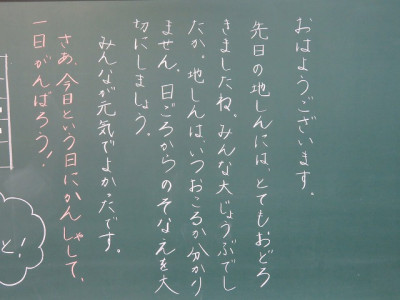 おはようございます。
先日の地しんには、とてもおどろ
きましたね。みんな大じょうぶでし
たか。地しんは、いつおこるか分かり
ません。日ごろからのそなえを大
切にしましょう。
みんなが元気でよかったです。
さあ、今日という日にかんしゃして、
一日がんばろう!
と!